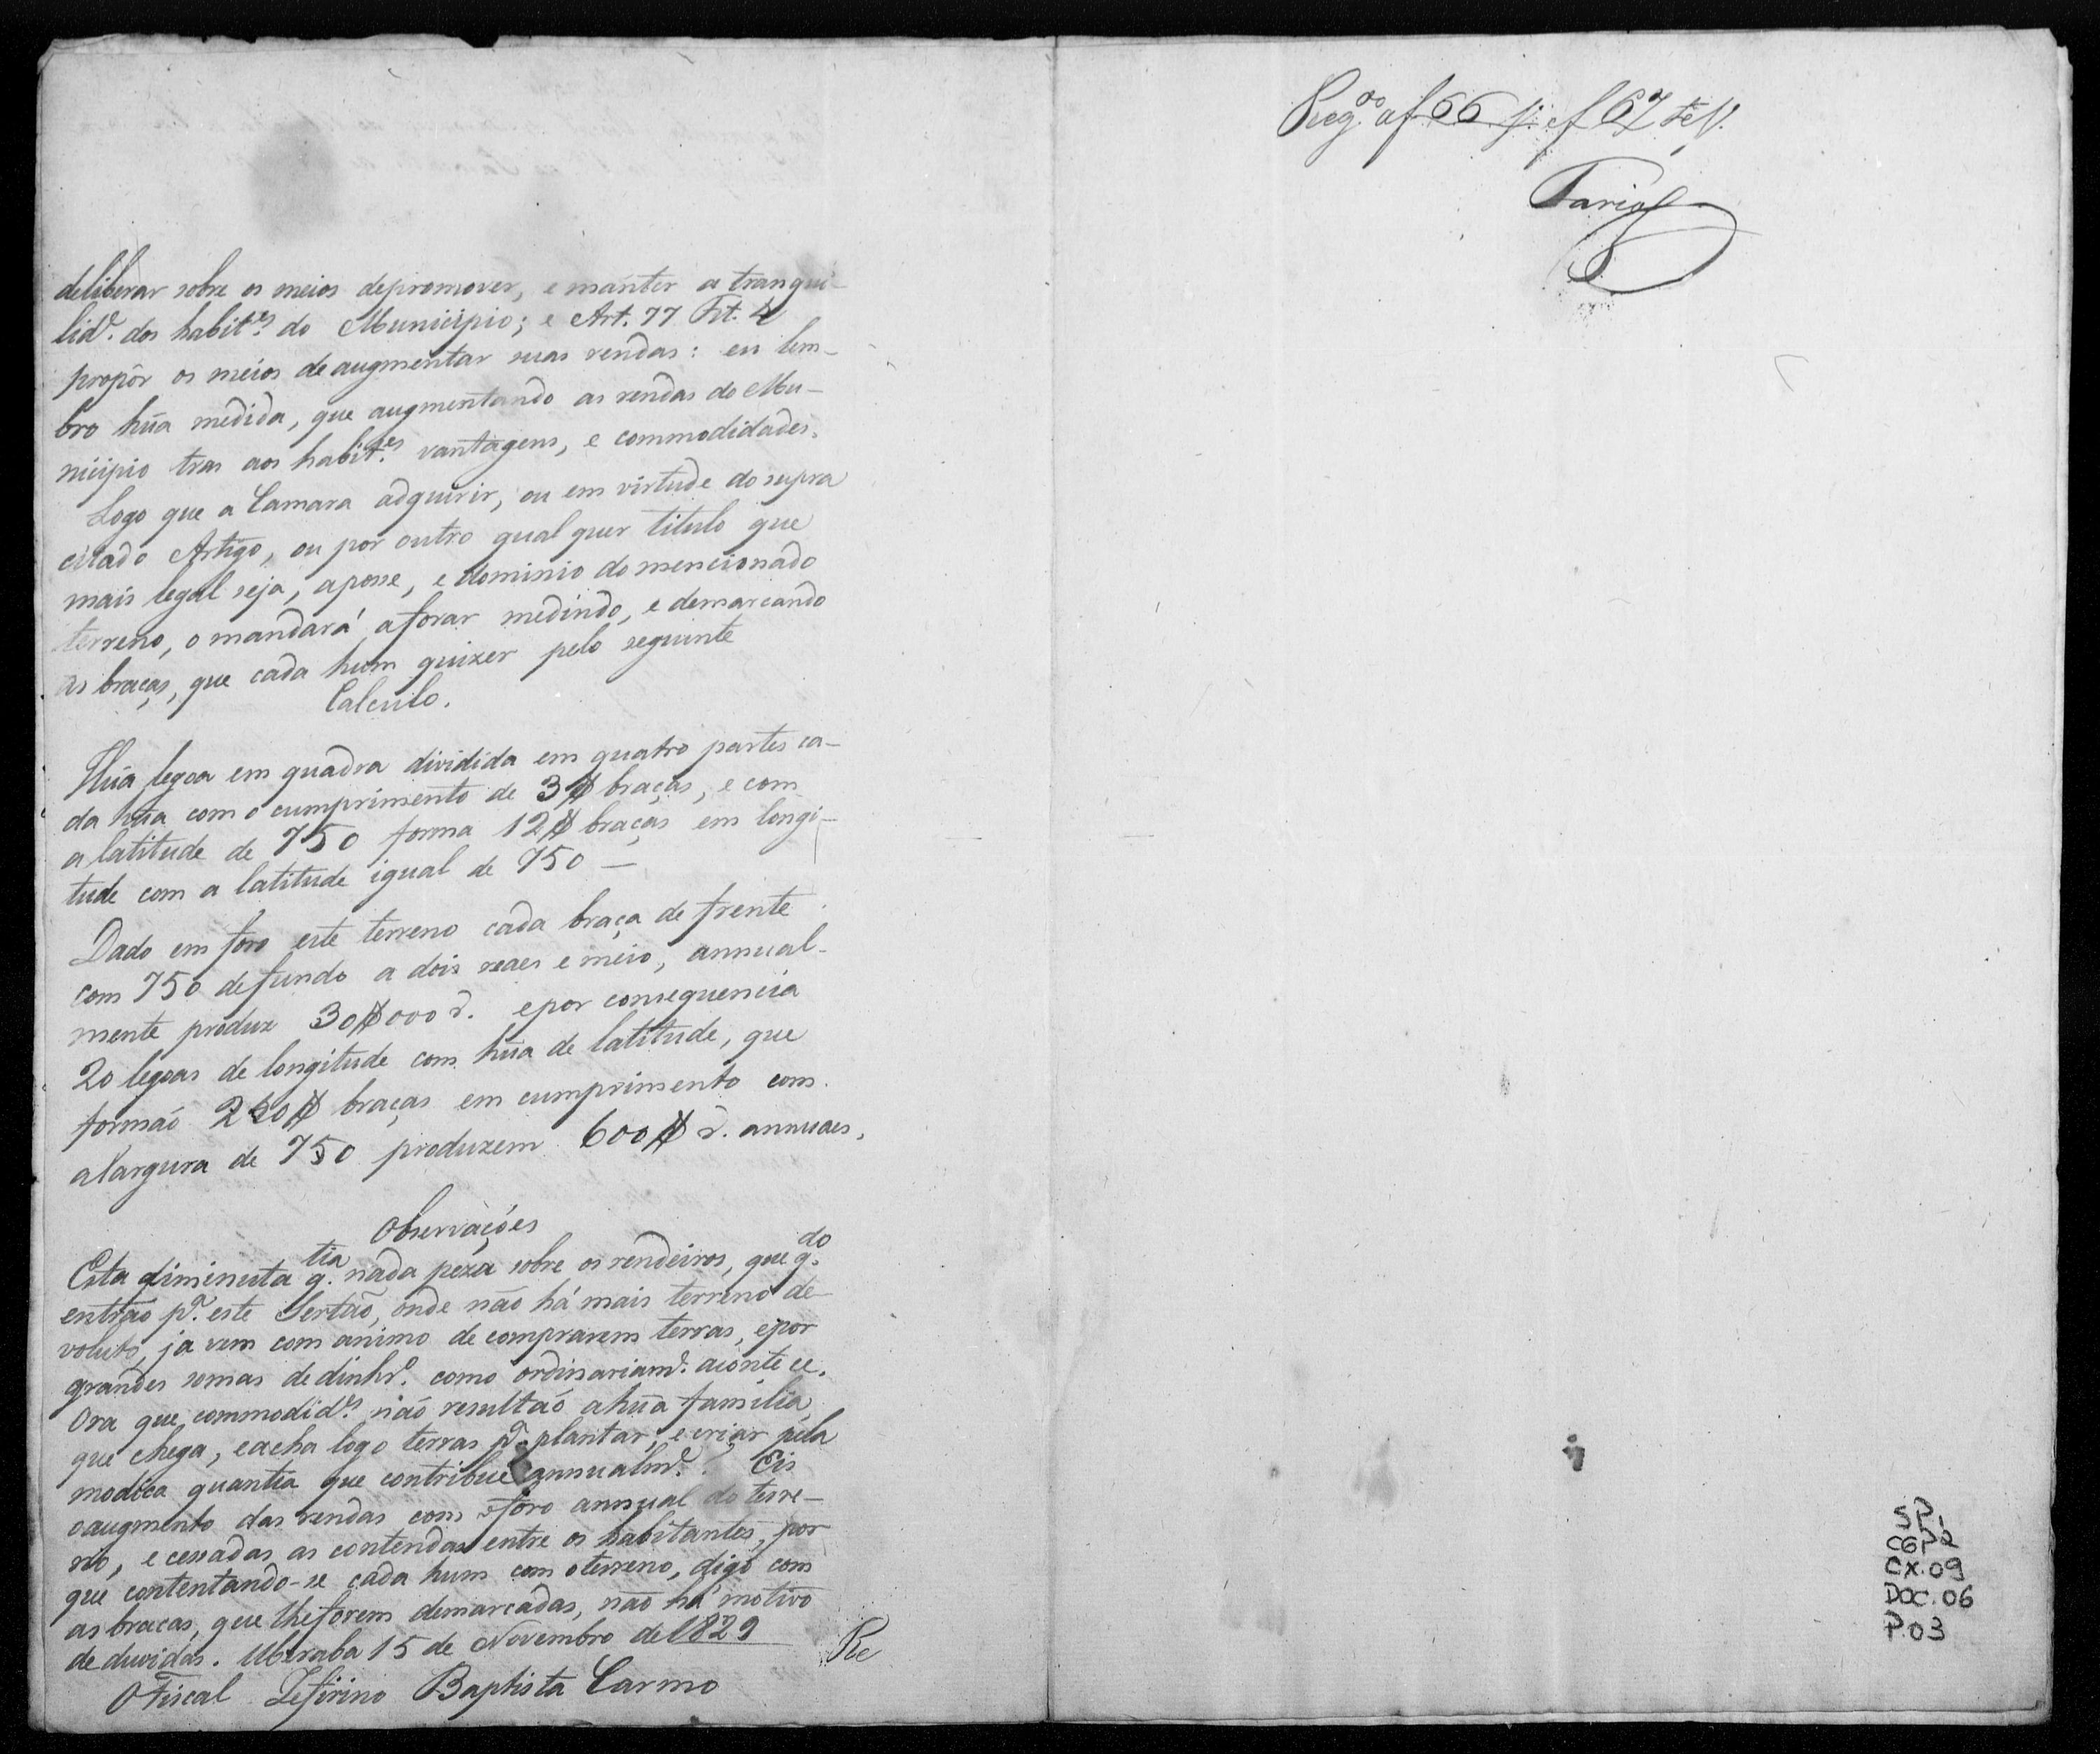 deliberar sobre os meios depromover, e manter a tranqui-
lid.e dos habit.es do Municipio; e Art. 77 Tit. 4
propôr os meios de augmentar suas rendas: eu lem-
bro hũa medida, que augmentando as rendas do Mu-
nicipio tras aos habit.es vantagens, e commodidades.
Logo que a Camara adquirir, ou em virtude do supra
citado Artigo, ou por outro qual quer titulo que
mais legal seja, aposse, e dominio do mencionado
terreno, o mandará aforar medindo, e demarcando
as braças, que cada hum quizer pelo seguinte
Calculo.
Hũa legoa em quadra dividida em quatro partes ca-
da hũa com o cumprimento de 3$ braças, e com
a latitude de 750 forma 12$ braças em longi-
tude com a latitude igual de 750 —
Dado em foro este terreno cada braça de frente
com 750 defundo a dois reaes e meio, annual-
mente produz 30$000 r. epor consequencia
20 legoas de longitude com hũa de latitude, que
formão 240$ braças em cumprimento com
alargura de 750 produzem 600$ r. annuaes,
Observações
Esta diminuta q.tia nada peza sobre os rendeiros, que q.do
entrão p.a este Sertão, onde não há mais terreno de-
voluto, ja vem com animo de comprarem terras, epor
grandes somas de dinhr.o como ordinariam.e acontece.
Ora que commodid.es não resultão ahũa familia,
que chega, eacha logo terras p.a plantar, e criar pela
modica quantia que contribue annualm.e? Eis
oaugmento das rendas com oforo annual do terre-
no, e cessadas as contendas entre os habitantes, por
que contentando-se cada hum com oterreno, digo com
as bracas, que lheforem demarcadas, não há motivo
de duvidas. Uberaba 15 de Novembro de 1829
OFiscal Zefirino Baptista Carmo
Re
Reg.do af 66 v. ef 67 tes.
Faria
SP.
CGP2
CX.09
DOC.06
P.03